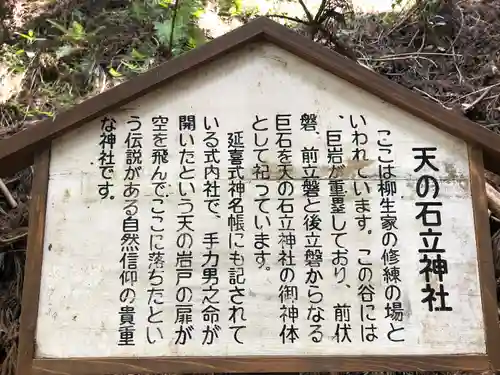 天の石立神社
ここは柳生家の修練の場と
いわれています。この谷には
、巨岩が重畳しており、前伏
磐、前立磐と後立磐からなる
巨石を天の石立神社の御神体
として祀っています。
延喜式神名帳にも記されて
いる式内社で、手力男之命が
開いたという天の岩戸の扉が
空を飛んでここに落ちたとい
う伝説がある自然信仰の貴重
な神社です。